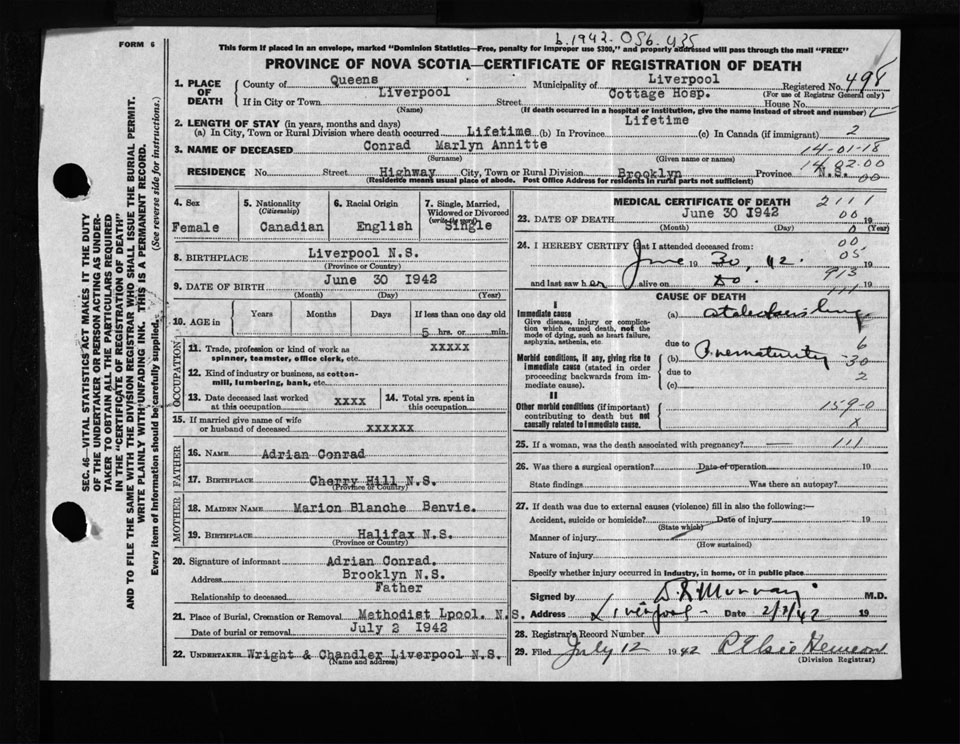 FORM 6
b.1942-056-435
This form if placed in an envelope, marked "Dominion Statistics—Free, penalty for improper use $300," and properly addressed will pass through the mail "FREE"
PROVINCE OF NOVA SCOTIA—CERTIFICATE OF REGISTRATION OF DEATH
1. PLACE OF DEATH County of Queens Municipality of Liverpool Registered No. 498
(For use of Registrar General only)
If in City or Town Liverpool Street Cottage Hosp. House No.
(Name) (If death occurred in a hospital or institution, give the name instead of street and number)
2. LENGTH OF STAY (in years, months and days) Lifetime
(a) In City, Town or Rural Division where death occurred Lifetime (b) In Province (c) In Canada (if immigrant) 2
3. NAME OF DECEASED Conrad Marlyn Annitte 14-01-18
(Surname) (Given name or names) 14-02-00
RESIDENCE No. Street Highway City, Town or Rural Division Brooklyn Province N.S. 00
(Residence means usual place of abode. Post Office Address for residents in rural parts not sufficient)
4. Sex Female
5. Nationality (Citizenship) Canadian
6. Racial Origin English
7. Single, Married, Widowed or Divorced (write the word) Single
8. BIRTHPLACE Liverpool N.S.
(Province or Country)
9. DATE OF BIRTH June 30 1942
(Month) (Day) (Year)
10. AGE in Years Months Days If less than one day old
5 hrs. or min.
OCCUPATION
11. Trade, profession or kind of work as spinner, teamster, office clerk, etc. XXXXX
12. Kind of industry or business, as cotton-mill, lumbering, bank, etc.
13. Date deceased last worked at this occupation XXXX
14. Total yrs. spent in this occupation
15. If married give name of wife or husband of deceased XXXXXX
FATHER
16. NAME Adrian Conrad
17. BIRTHPLACE Cherry Hill N.S.
(Province or Country)
MOTHER
18. MAIDEN NAME Marion Blanche Benvie.
19. BIRTHPLACE Halifax N.S.
(Province or Country)
20. Signature of informant Adrian Conrad.
Address Brooklyn N.S.
Relationship to deceased Father
21. Place of Burial, Cremation or Removal Methodist Lpool. N.S.
Date of burial or removal July 2 1942
22. UNDERTAKER Wright & Chandler Liverpool N.S.
(Name and address)
MEDICAL CERTIFICATE OF DEATH 2111
23. DATE OF DEATH June 30 1942 00 19
(Month) (Day) 0 (Year)
24. I HEREBY CERTIFY that I attended deceased from: 00
June 19 30, 42. 05 19
and last saw her alive on Do. 913 19
111
CAUSE OF DEATH
I
Immediate cause
Give disease, injury or complication which caused death, not the mode of dying, such as heart failure, asphyxia, asthenia, etc.
(a)
due to 6
Morbid conditions, if any, giving rise to immediate cause (stated in order proceeding backwards from immediate cause).
(b) Prematurity -30
due to 2
(c)
II
Other morbid conditions (if important) contributing to death but not causally related to immediate cause.
159-0
X
25. If a woman, was the death associated with pregnancy? — 111
26. Was there a surgical operation? Date of operation 19
State findings Was there an autopsy?
27. If death was due to external causes (violence) fill in also the following:—
Accident, suicide or homicide? Date of injury 19
(State which)
Manner of injury
(How sustained)
Nature of injury
Specify whether injury occurred in industry, in home, or in public place
Signed by Murray M.D.
Address Liverpool - Date 2/7/42 19
28. Registrar's Record Number
29. Filed July 12 1942
(Division Registrar)
SEC. 46—VITAL STATISTICS ACT MAKES IT THE DUTY
OF THE UNDERTAKER OR PERSON ACTING AS UNDER-
TAKER TO OBTAIN ALL THE PARTICULARS REQUIRED
IN THE "CERTIFICATE OF REGISTRATION OF DEATH"
AND TO FILE THE SAME WITH THE DIVISION REGISTRAR WHO SHALL ISSUE THE BURIAL PERMIT.
WRITE PLAINLY WITH UNFADING INK. THIS IS A PERMANENT RECORD.
Every item of Information should be carefully supplied. (See reverse side for instructions.)